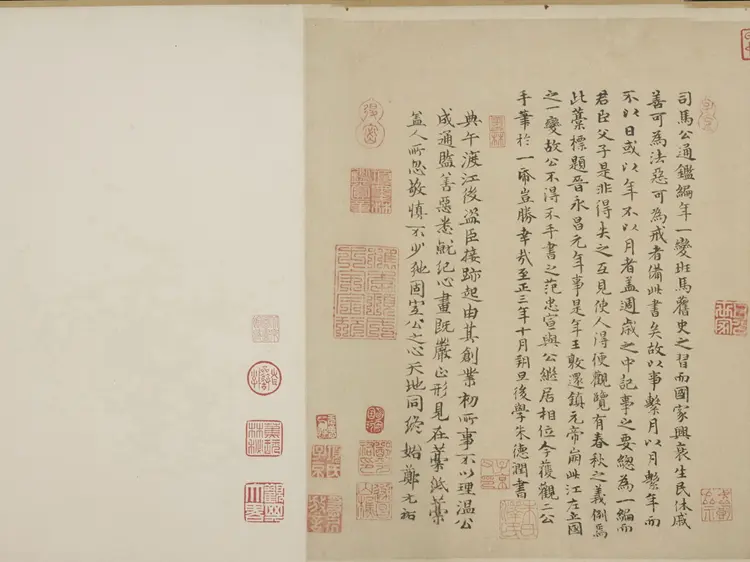 司馬公通鑑編年一變班馬舊史之習而國家興衰生民休戚
善可為法惡可為戒者備此書矣故以事繫月以月繫年而
不以日或以年不以月者蓋週歲之中記事之要總為一編而
君臣父子是非得失之互見使人得便觀覽有春秋之義例焉
此藁標題晉永昌元年事是年王敦還鎮元帝崩此江左立國
之一變故公不得不手書之范忠宣與公繼居相位今獲觀二公
手筆於一帋豈勝幸哉至正三年十月朔旦後學朱德潤書
典午渡江後盜臣接跡起由其創業初所事不以理溫公
成通監善惡悉就紀心畫既嚴正形見在藁紙藁
盖人所忽敬慎不少弛固宜公之心天地同終始鄭元祐